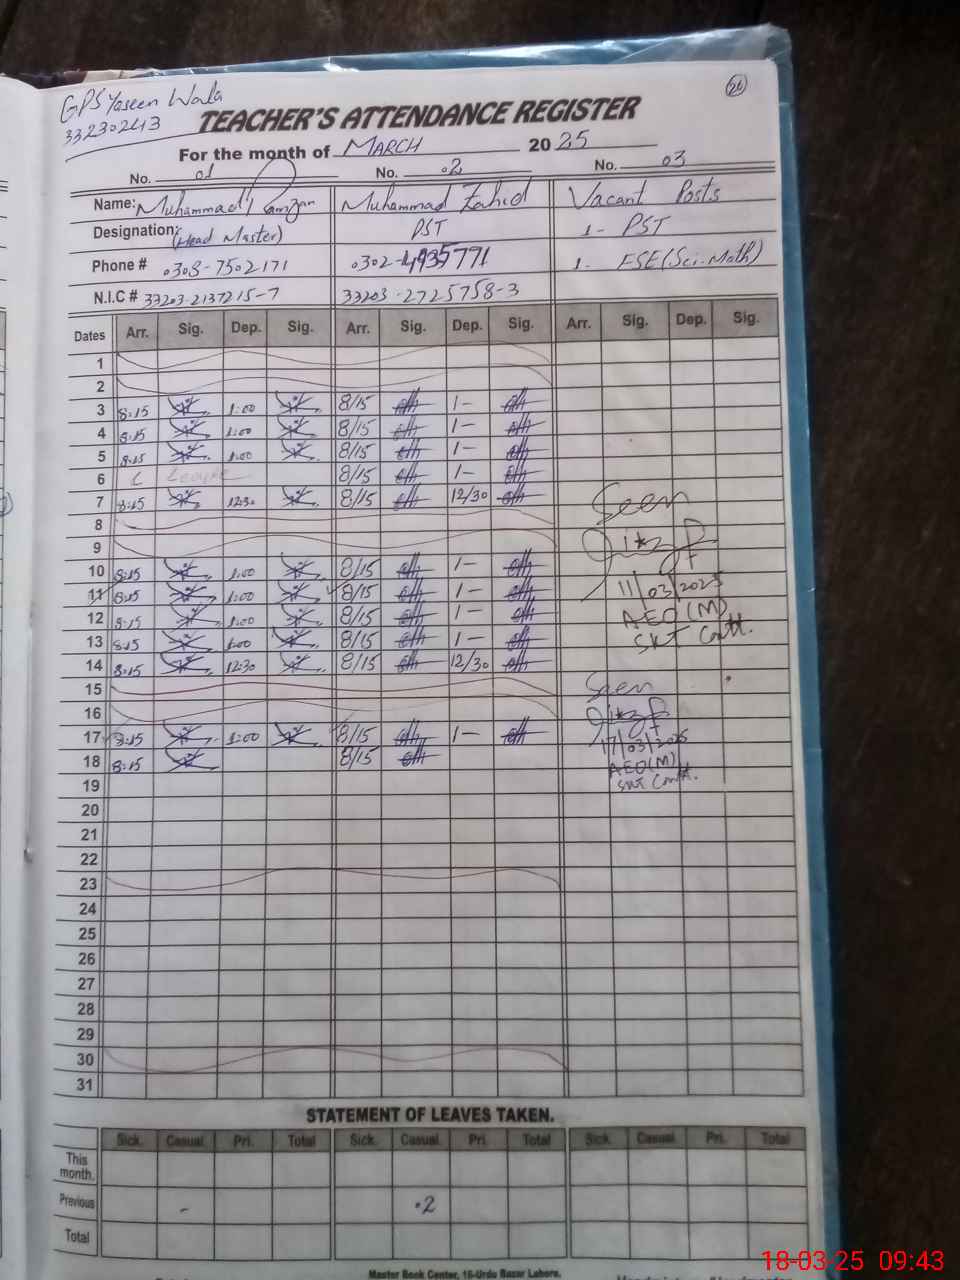 GPS Yaseen Wala
33230243
26
TEACHER'S ATTENDANCE REGISTER
For the month of MARCH 2025
No. 01 No. 02 No. 03
Name: Muhammad Ramzan Muhammad Zahid Vacant Posts
Designation: (Head Master) PST 1- PST
Phone # 0308-7502171 0302-4935771 1- ESE(Sci-Math)
N.I.C # 33203-2137215-7 33203-2725758-3
Dates Arr. Sig. Dep. Sig. Arr. Sig. Dep. Sig. Arr. Sig. Dep. Sig.
1
2
3 8:15 1:00 8/15 1-
4 8:15 1:00 8/15 1-
5 8:15 1:00 8/15 1-
6 L Leave 8/15 1-
7 8:15 12:30 8/15 12/30 Seen
8
9
10 8:15 1:00 8/15 1- 11/03/2025
11 8:15 1:00 8/15 1- AEO(M)
12 8:15 1:00 8/15 1- SKT Cantt.
13 8:15 1:00 8/15 1-
14 8:15 12:30 8/15 12/30
15 Seen
16
17 8:15 1:00 8/15 1- 17/03/2025
18 8:15 8/15 AEO(M)
19 SKT Cantt.
20
21
22
23
24
25
26
27
28
29
30
31
STATEMENT OF LEAVES TAKEN.
Sick. Casual. Pri. Total Sick. Casual. Pri. Total Sick. Casual. Pri. Total
This month.
Previous - .2
Total
Master Book Center, 16-Urdu Bazar Lahore.
18-03-25 09:43